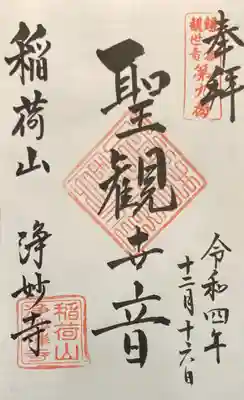 奉拝
聖観世音
稲荷山 浄妙寺
令和四年
十二月十六日
稲荷山